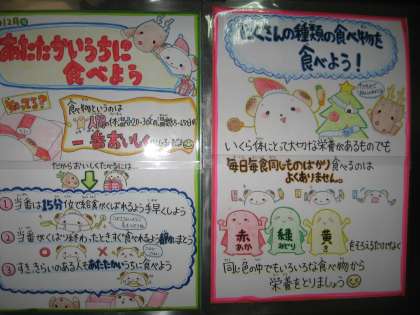 12月号
あたたかいうちに
食べよう
食べものというのは
一番おいしく
だからおいしくたべるには
① 当番は15分位で給食がくばれるよう手早くしよう
② 当番がくばりおわったとき、すぐ食べれるよう静かにまとう
③ すき、きらいのある人もあたたかいうちに食べよう
たくさんの種類の食べ物を
食べよう！
いくら体にとって大切な栄養があるものでも
毎日毎食同じものばかり食べるのは
よくありません。
赤
あか
緑
みどり
黄
き
をそろえるだけでなく
同じ色の中でもいろいろな食べ物から
栄養をとりましょう